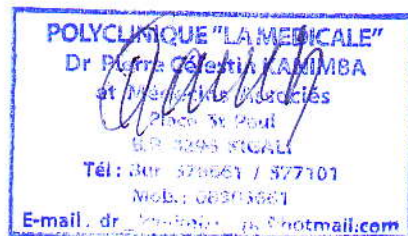 POLYCLINIQUE "LA MEDICALE"
Dr Pierre Célestin KANIMBA
et Médecins Associés
Place St Paul
B.P. 3295 KIGALI
Tél : Bur 577101
Mob.:
E-mail. dr hotmail.com